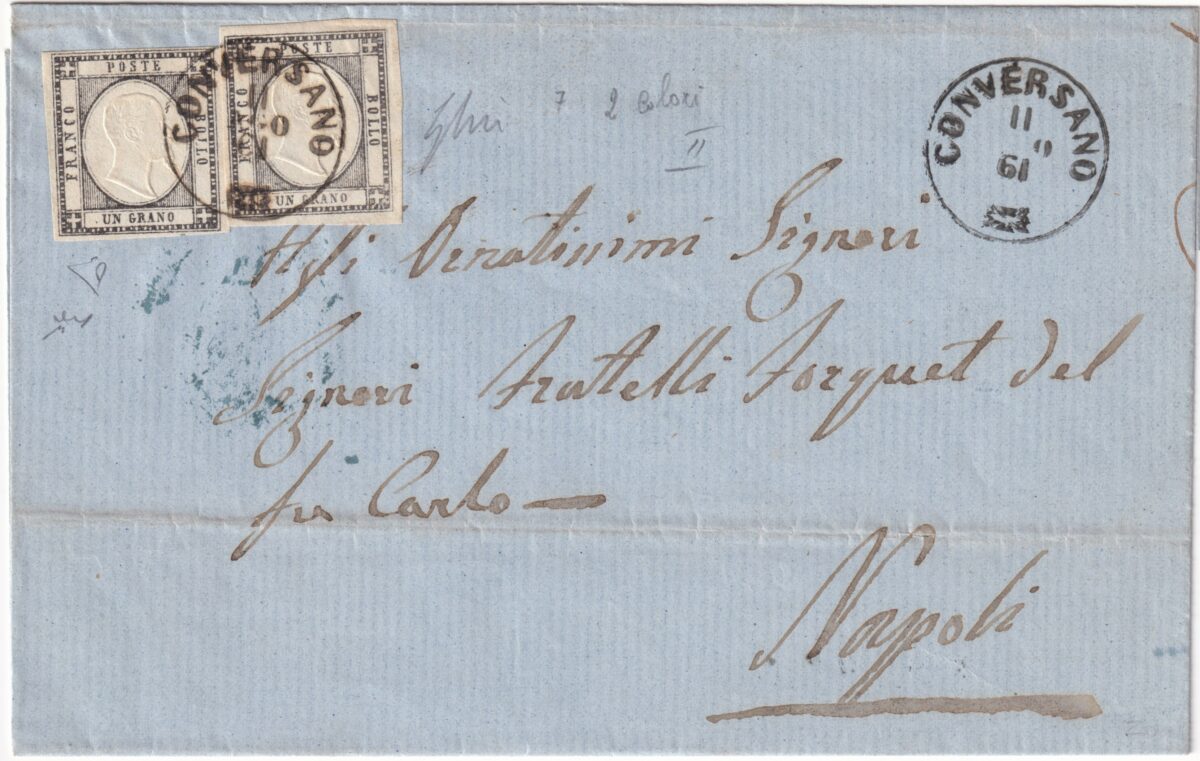 POSTE
FRANCO
BOLLO
UN GRANO
POSTE
FRANCO
BOLLO
UN GRANO
CONVERSANO
11
CONVERSANO
11
61
7 2 colori
II
Agli Ornatissimi Signori
Signori Fratelli Forquet del
fu Carlo —
Napoli